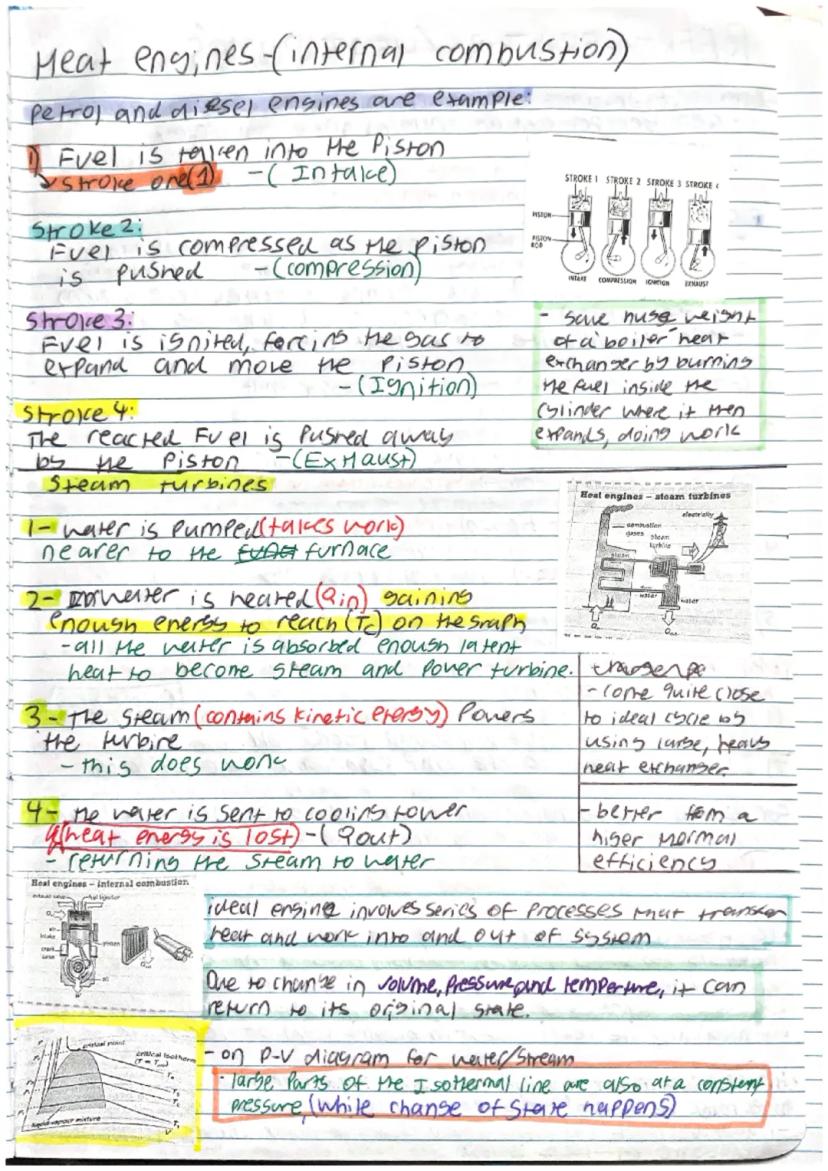 Heat engines-(internal combustion)
Petrol and diesel engines are example:
1) Fuel is taken into the Piston
↳ stroke one(1) -( Intake)
STROKE 1 STROKE 2 STROKE 3 STROKE 4
PISTON
PISTON ROD
INTAKE COMPRESSION IGNITION EXHAUST
Stroke 2:
Fuel is compressed as the piston
is pushed -(compression)
Stroke 3:
Fuel is ignited, forcing the gas to
expand and move the Piston
-(Ignition)
- save huge weight
of a boiler heat
exchanger by burning
the fuel inside the
cylinder where it then
expands, doing work
Stroke 4:
The reacted Fuel is Pushed away
by the Piston -(ExHaust)
Steam turbines
Heat engines – steam turbines
electricity
combustion
gases
steam
turbine
steam
water
water
1- water is Pumped(takes work)
nearer to the furnace
2- water is heated (Qin) gaining
enough energy to reach (Tc) on the graph
-all the water is absorbed enough latent
heat to become steam and Power turbine.
- come quite close
to ideal cycle by
using large, heavy
heat exchanger
3- The Steam (contains kinetic energy) Powers
the turbine
- this does work
4- the water is sent to cooling tower
(heat energy is lost) -( Qout)
- returning the steam to water
- better from a
higer thermal
efficiency
Heat engines – internal combustion
fuel injector
air
intake
piston
crank
oil
ideal engine involves series of processes that transfer
heat and work into and out of system
Due to change in volume, Pressure, and temperture, it can
return to its original state.
critical point
critical isotherm
liquid-vapour mixture
- on P-V diagram for water/Steam
- large Parts of the Isothermal line are also at a constent
pressure, (while change of state happens)